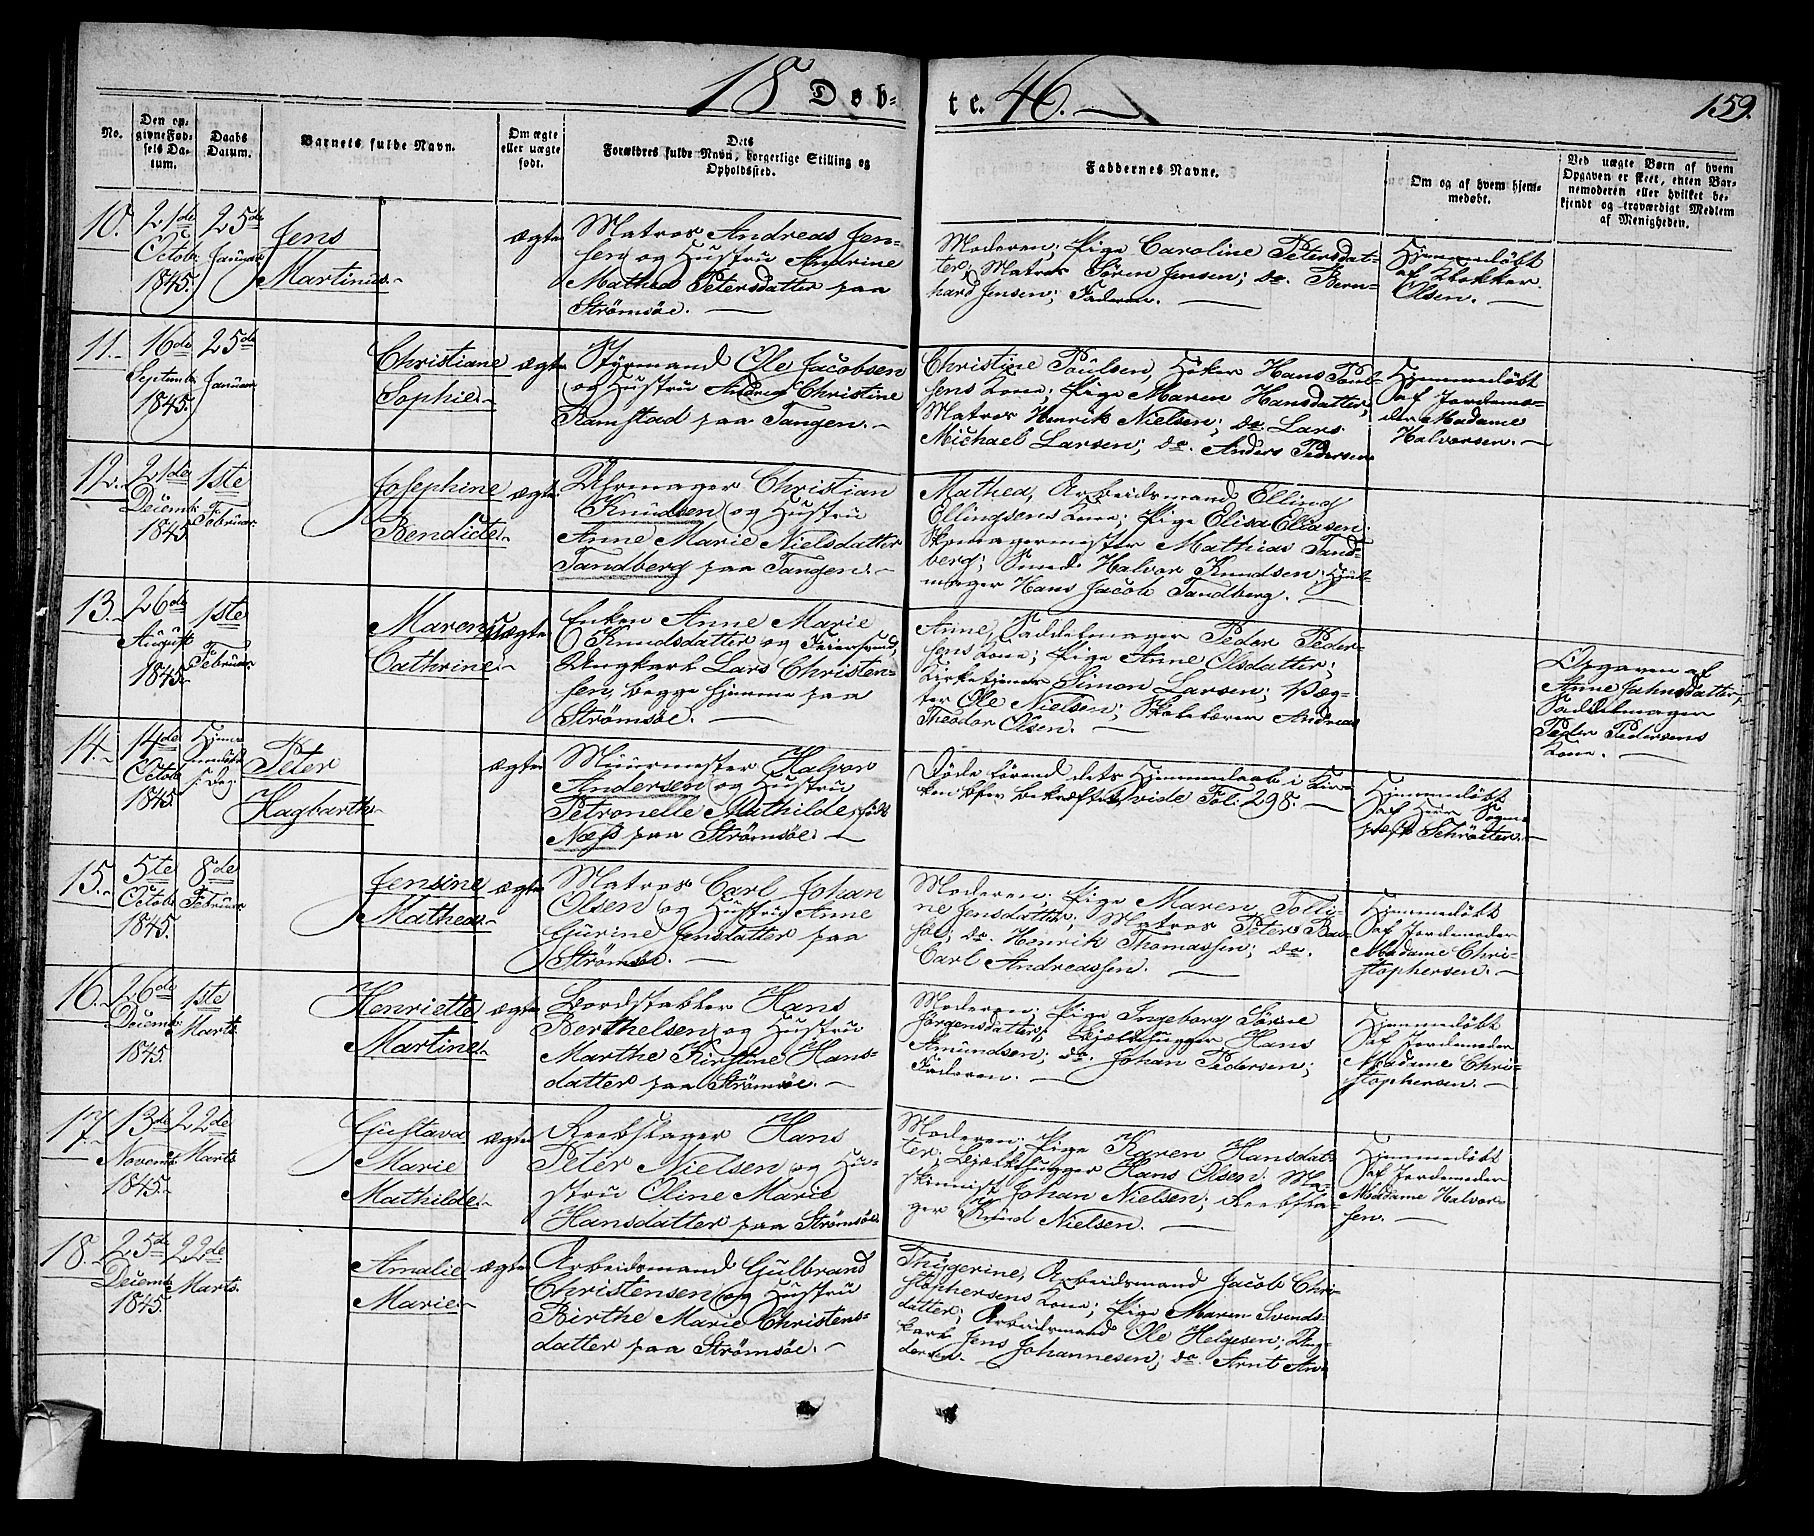 18 Døb-
te. 46.
159.
No.
Den op-
givne Fød-
sels Da-
tum.
Daabs
Datum.
Barnets fulde Navn.
Om ægte
eller uægte
født.
Dets
Forældres fulde Navn, borgerlige Stilling og
Opholdssted.
Faddernes Navne.
Om og af hvem hjem-
medøbt.
Ved uægte Børn af hvem
Opgaven er skeet, enten Bar-
nemoderen eller hvilket be-
kjendt og troværdigt Medlem
af Menigheden.
10.
21de
Octob.
1845.
25de
Januar
Jens
Martinus.
ægte
Matros Andreas Jen-
sen og Hustru Andrine
Mathea Petersdatter paa
Strömsöe.
Moderen; Pige Caroline Petersdat-
ter; Matros Sören Jensen; do. Bern-
hard Jensen; Faderen.
Hjemmedöbt
af Klokker
Olsen.
11.
16de
Septemb.
1845.
25de
Januar
Christiane
Sophie.
ægte
Styrmand Ole Jacobsen
og Hustru Andrea Christine
Ramstad paa Tangen.
Christine Poulsen, Höker Hans Poul-
sens Kone; Pige Maren Hansdatter;
Matros Henrik Nielsen; do. Lars
Michael Larsen; do. Anders Pedersen
Hjemmedöbt
af Jordemo-
der Madame
Halvorsen.
12.
21de
Decemb.
1845
1ste
Februar
Josephine
Benedicte.
ægte
Uhrmager Christian
Knudsen og Hustru
Anne Marie Nielsdatter
Tandberg paa Tangen.
Mathea, Arbeidsmand Elling
Ellingsens Kone; Pige Elisa Eliasen
Skomagermester Mathias Tand-
berg; Svend Halvor Knudsen; Hjul-
mager Hans Jacob Tandberg.
13.
26de
August
1845.
1ste
Februar
Maren
Cathrine.
Uægte
Enken Anne Marie
Knudsdatter og Feiersvend,
Ungkarl Lars Christen-
sen, begge hjemme paa
Strömsöe.
Anne, Saddelmager Peder Peder-
sens Kone; Pige Anne Olsdatter;
Kirketjener Simon Larsen; Væg-
ter Ole Nielsen; Skolelærer Andreas
Theodor Olsen.
Opgaven af
Anne Jahnsdatter,
Saddelmager
Peder Pedersens
Kone.
14.
14de
Octob.
1845.
Hjemme
s. Dag.
Peter
Hagbarth.
ægte
Muurmester Halvor
Andersen og Hustru
Petronelle Mathilde, födt
Næss paa Strömsöe.
Döde förend dets Hjemmedaab i Kir-
ken blev bekræftet, vide Fol: 298.
Hjemmedöbt
af Herr Sogne
præst Schröetter.
15.
5te
Octob.
1845.
8de
Februar
Jensine
Mathea.
ægte
Matros Carl Johan
Olsen og Hustru Anne
Gurine Jensdatter paa
Strömsöe.
Moderen; Pige Maren Tolli-
ne Jensdatter; Matros Peter Bas-
söe; do. Henrik Thomassen; do.
Carl Andreassen.
Hjemmedöbt
af Jordemoder
Madame Chri-
stophersen.
16.
26de
Decemb.
1845.
1ste
Marts.
Henriette
Martine.
ægte
Bordstabler Hans
Berthelsen og Hustru
Marthe Kirstine Hans-
datter paa Strömsöe.
Moderen; Pige Ingeborg Sörine
Jörgensdatter; Bjelkehugger Hans
Amundsen; do. Johan Pedersen;
Faderen.
Hjemmedöbt
af Jordemoder
Madame Chri-
stophersen.
17.
13de
Novemb.
1845.
22de
Marts.
Gustava
Marie
Mathilde.
ægte
Reebslager Hans
Peter Nielsen og Hu-
stru Oline Marie
Hansdatter paa Strömsöe.
Moderen; Pige Karen Hansdat-
ter; Bjelkehugger Hans Olsen; Ma-
skinmist Johan Nielsen; Reebsla-
ger Knud Nielsen.
Hjemmedöbt
af Jordemoder
Madame Halvor-
sen.
18.
25de
Decemb.
1845.
22de
Marts.
Amalie
Marie.
ægte
Arbeidsmand Gulbrand
Christensen og Hustru
Birthe Marie Christens-
datter paa Strömsöe.
Thygerine, Arbeidsmand Jacob Chri-
stophersens Kone; Pige Maren Svends-
datter; Arbeidsmand Ole Helgesen; Ung-
karl Jens Johannesen; do. Arnt An-
dersen.